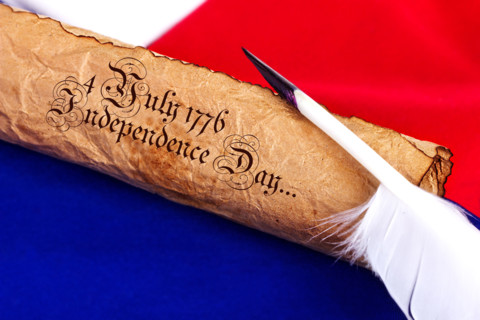 4 July 1776
Independence Day...